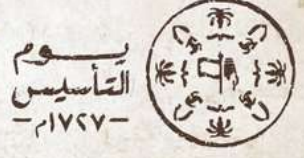 يـــوم
التأسيس
-١٧٢٧م-